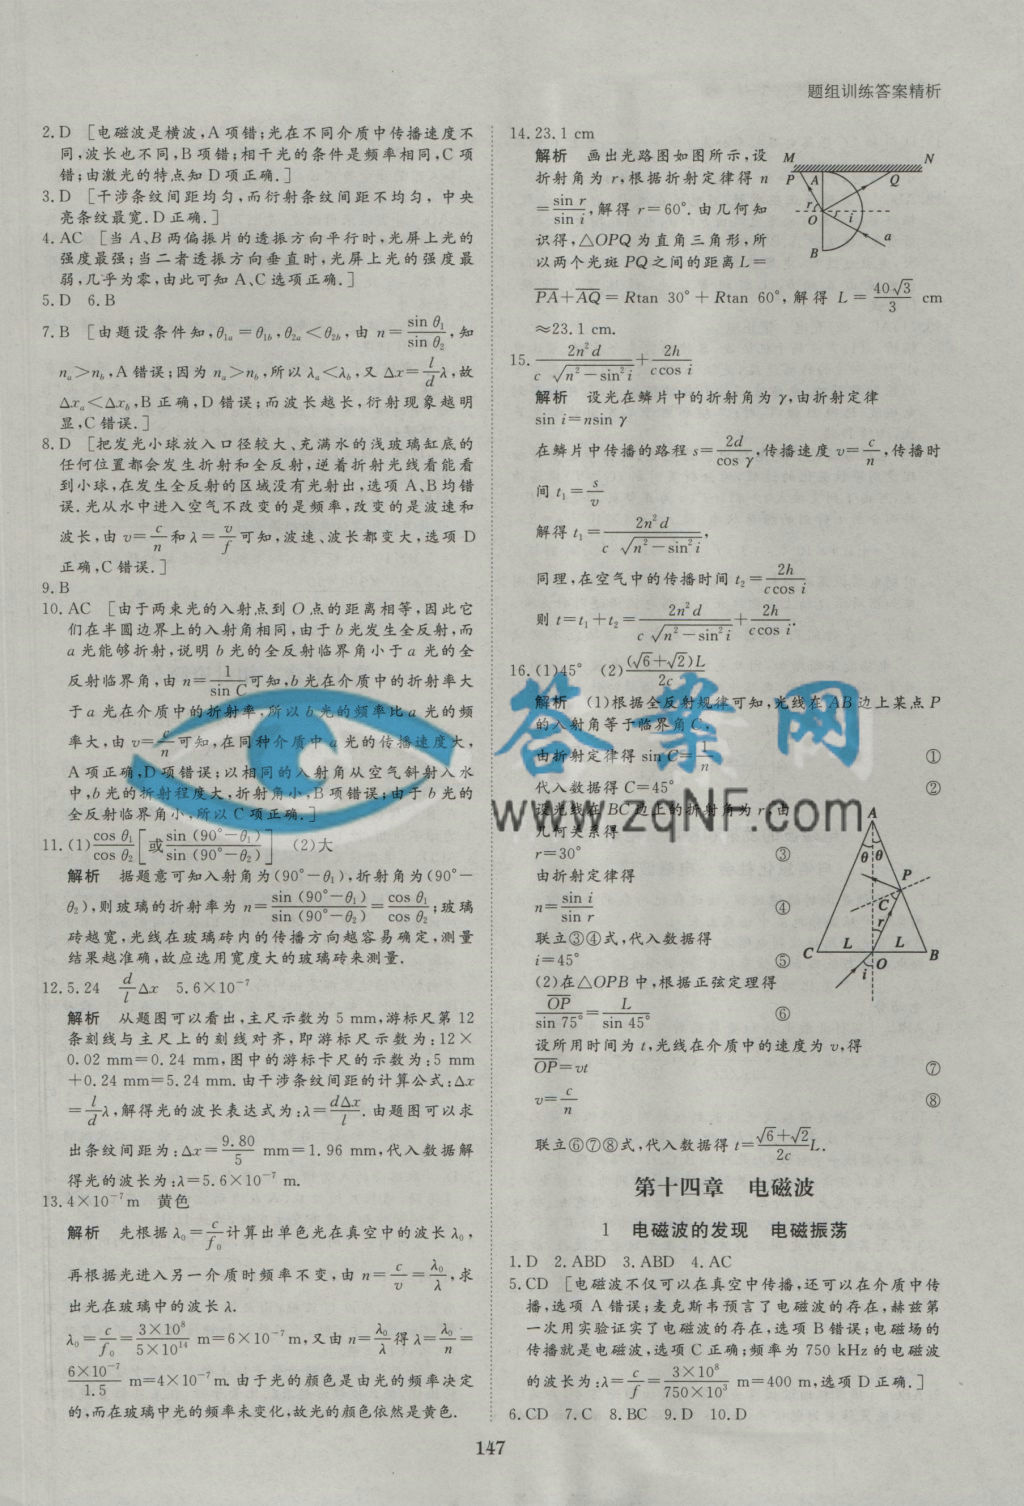 题组训练答案精析
2.D [电磁波是横波,A项错;光在不同介质中传播速度不
同,波长也不同,B项错;相干光的条件是频率相同,C项
错;由激光的特点知D项正确.]
3.D [干涉条纹间距均匀,而衍射条纹间距不均匀,中央
亮条纹最宽.D正确.]
4.AC [当A、B两偏振片的透振方向平行时,光屏上光的
强度最强;当二者透振方向垂直时,光屏上光的强度最
弱,几乎为零,由此可知A、C选项正确.]
5.D 6.B
7.B [由题设条件知,θ₁ₐ=θ₁b,θ₂ₐ<θ₂b,由 n=sin θ₁/sin θ₂,知
nₐ>n_b,A错误;因为nₐ>n_b,所以λₐ<λ_b,又Δx=l/d λ,故
Δxₐ<Δx_b,B正确,D错误;而波长越长,衍射现象越明
显,C错误.]
8.D [把发光小球放入口径较大、充满水的浅玻璃缸底的
任何位置都会发生折射和全反射,逆着折射光线看能看
到小球,在发生全反射的区域没有光射出,选项A、B均错
误.光从水中进入空气不改变的是频率,改变的是波速和
波长,由v=c/n和λ=v/f可知,波速、波长都变大,选项D
正确,C错误.]
9.B
10.AC [由于两束光的入射点到O点的距离相等,因此它
们在半圆边界上的入射角相同,由于b光发生全反射,而
a光能够折射,说明b光的全反射临界角小于a光的全
反射临界角,由n=1/sin C可知,b光在介质中的折射率大
于a光在介质中的折射率,所以b光的频率比a光的频
率大,由v=c/n可知,在同种介质中a光的传播速度大,
A项正确,D项错误;以相同的入射角从空气斜射入水
中,b光的折射程度大,折射角小,B项错误;由于b光的
全反射临界角小,所以C项正确.]
11.(1)cos θ₁/cos θ₂[或sin (90°-θ₁)/sin (90°-θ₂)] (2)大
解析 据题意可知入射角为(90°-θ₁),折射角为(90°-
θ₂),则玻璃的折射率为n=sin (90°-θ₁)/sin (90°-θ₂)=cos θ₁/cos θ₂;玻璃
砖越宽,光线在玻璃砖内的传播方向越容易确定,测量
结果越准确,故应选用宽度大的玻璃砖来测量.
12.5.24 d/l Δx 5.6×10⁻⁷
解析 从题图可以看出,主尺示数为5 mm,游标尺第12
条刻线与主尺上的刻线对齐,即游标尺示数为:12×
0.02 mm=0.24 mm,图中的游标卡尺的示数为:5 mm
+0.24 mm=5.24 mm.由干涉条纹间距的计算公式:Δx
=l/d λ,解得光的波长表达式为:λ=dΔx/l.由题图可以求
出条纹间距为:Δx=9.80/5 mm=1.96 mm,代入数据解
得光的波长为:λ=5.6×10⁻⁷ m.
13.4×10⁻⁷m 黄色
解析 先根据λ₀=c/f₀计算出单色光在真空中的波长λ₀,
再根据光进入另一介质时频率不变,由n=c/v=λ₀/λ,求
出光在玻璃中的波长λ.
λ₀=c/f₀=3×10⁸/5×10¹⁴ m=6×10⁻⁷m,又由n=λ₀/λ得λ=λ₀/n=
6×10⁻⁷/1.5 m=4×10⁻⁷m.由于光的颜色是由光的频率决定
的,而在玻璃中光的频率未变化,故光的颜色依然是黄色.
14.23.1 cm
解析 画出光路图如图所示,设
折射角为r,根据折射定律得n
=sin r/sin i,解得r=60°.由几何知
识得,△OPQ为直角三角形,所
以两个光斑PQ之间的距离L=
PA+AQ=Rtan 30°+Rtan 60°,解得L=40√3/3 cm
≈23.1 cm.
M N P A Q r r i O a B
15.2n²d/(c√(n²-sin²i))+2h/(ccos i)
解析 设光在鳞片中的折射角为γ,由折射定律
sin i=nsin γ
在鳞片中传播的路程s=2d/cos γ,传播速度v=c/n,传播时
间t₁=s/v
解得t₁=2n²d/(c√(n²-sin²i)),
同理,在空气中的传播时间t₂=2h/(ccos i)
则t=t₁+t₂=2n²d/(c√(n²-sin²i))+2h/(ccos i).
16.(1)45° (2)(√6+√2)L/2c
解析 (1)根据全反射规律可知,光线在AB边上某点P
的入射角等于临界角C,
由折射定律得sin C=1/n ①
代入数据得C=45° ②
设光线在BC边上的折射角为r,由
几何关系得
r=30° ③
由折射定律得
n=sin i/sin r ④
联立③④式,代入数据得
i=45° ⑤
(2)在△OPB中,根据正弦定理得
OP/sin 75°=L/sin 45° ⑥
设所用时间为t,光线在介质中的速度为v,得
OP=vt ⑦
v=c/n ⑧
联立⑥⑦⑧式,代入数据得t=(√6+√2)/2c L.
A θ θ P C r C L L B O i
第十四章 电磁波
1 电磁波的发现 电磁振荡
1.D 2.ABD 3.ABD 4.AC
5.CD [电磁波不仅可以在真空中传播,还可以在介质中传
播,选项A错误;麦克斯韦预言了电磁波的存在,赫兹第
一次用实验证实了电磁波的存在,选项B错误;电磁场的
传播就是电磁波,选项C正确;频率为750 kHz的电磁波
的波长为:λ=c/f=3×10⁸/750×10³ m=400 m,选项D正确.]
6.CD 7.C 8.BC 9.D 10.D
147
答案网
www.zqNF.com